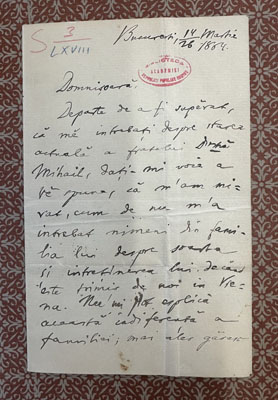 S 3
LXVIII
București, 14/26 Martie 1884.
BIBLIOTECA
ACADEMIEI
Domnișoară,
Departe de a fi supărat,
că mă întrebați despre starea
actuală a fratelui
Mihail, dați-mi voie a
vĕ spune, că m'am mi-
rat, cum de nu m'a
întrebat nimeni din fami-
lia lui despre soarta
și întreținerea lui, de când
este trimis de noi în Vie-
na. Nu-mi pot esplică
această indiferență a
familiei; mai ales găsesc